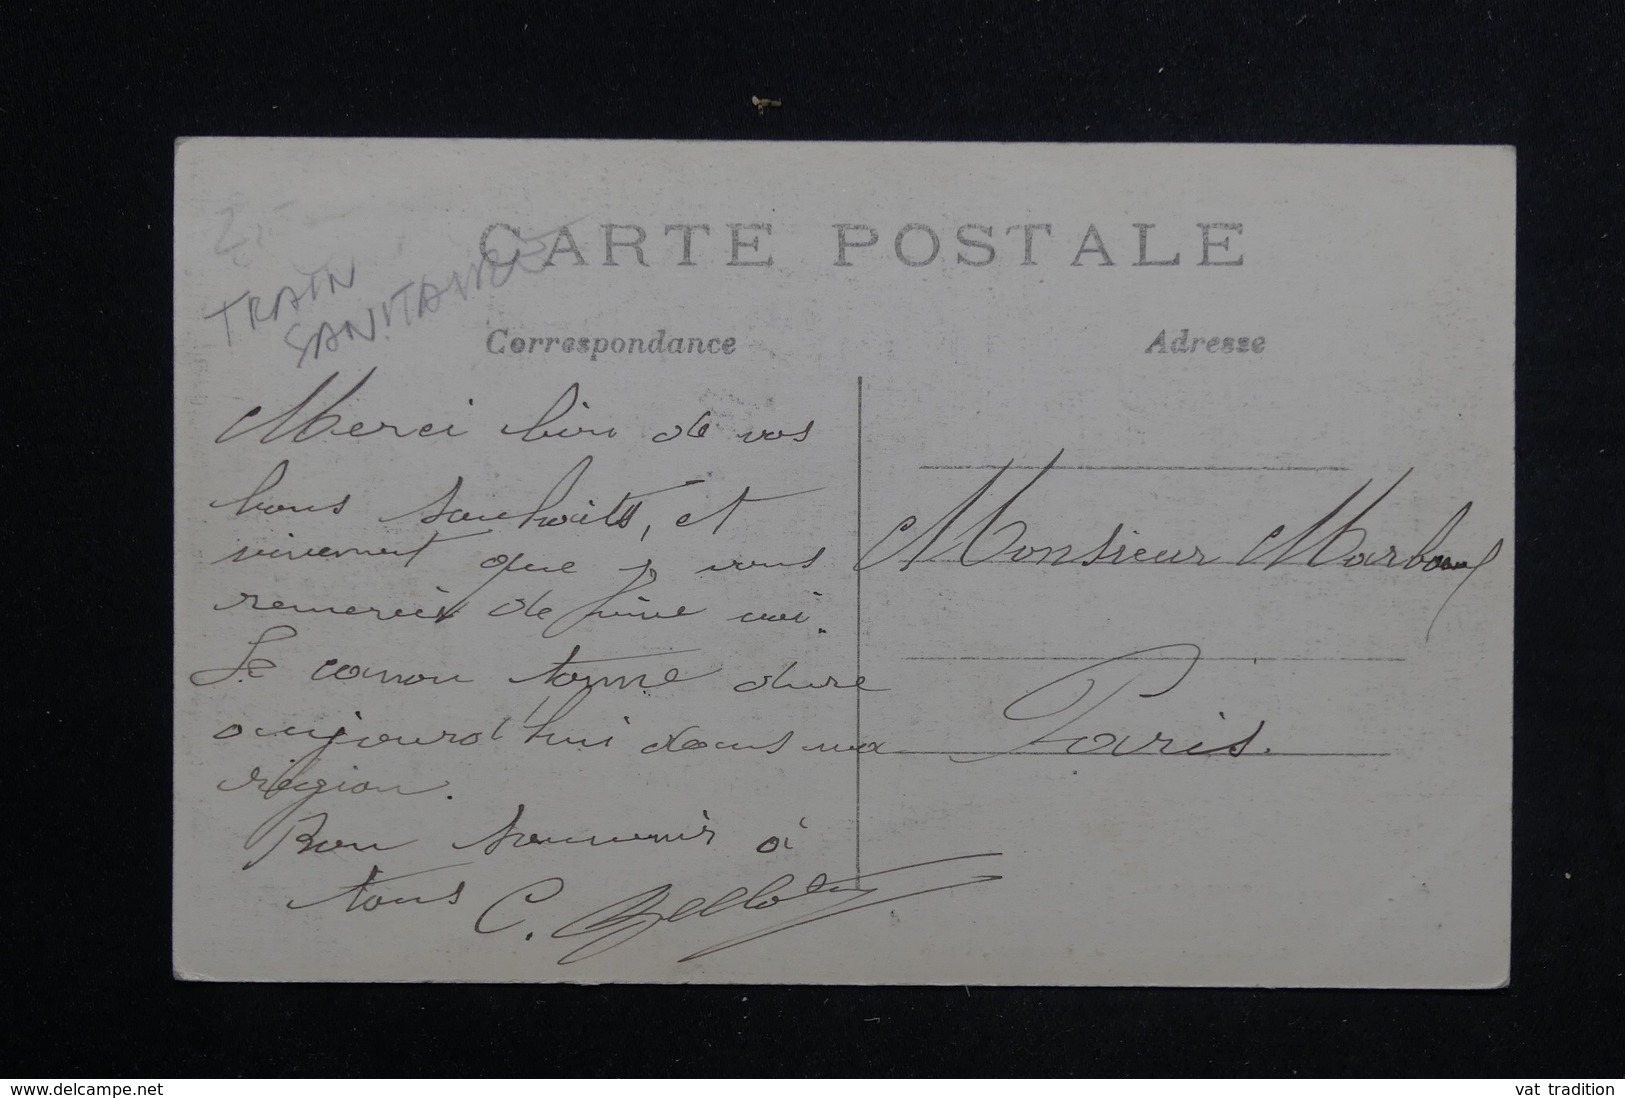 CARTE POSTALE
TRAIN
SANITAIRE
Correspondance
Adresse
Merci bien de vos
bons souhaits, et
vivement que je vous
remercie de vive voix.
Le canon tonne dure
aujourd'hui dans ma
région.
Bon souvenir à
tous C.
Monsieur
Paris.
www.delcampe.net
vat tradition